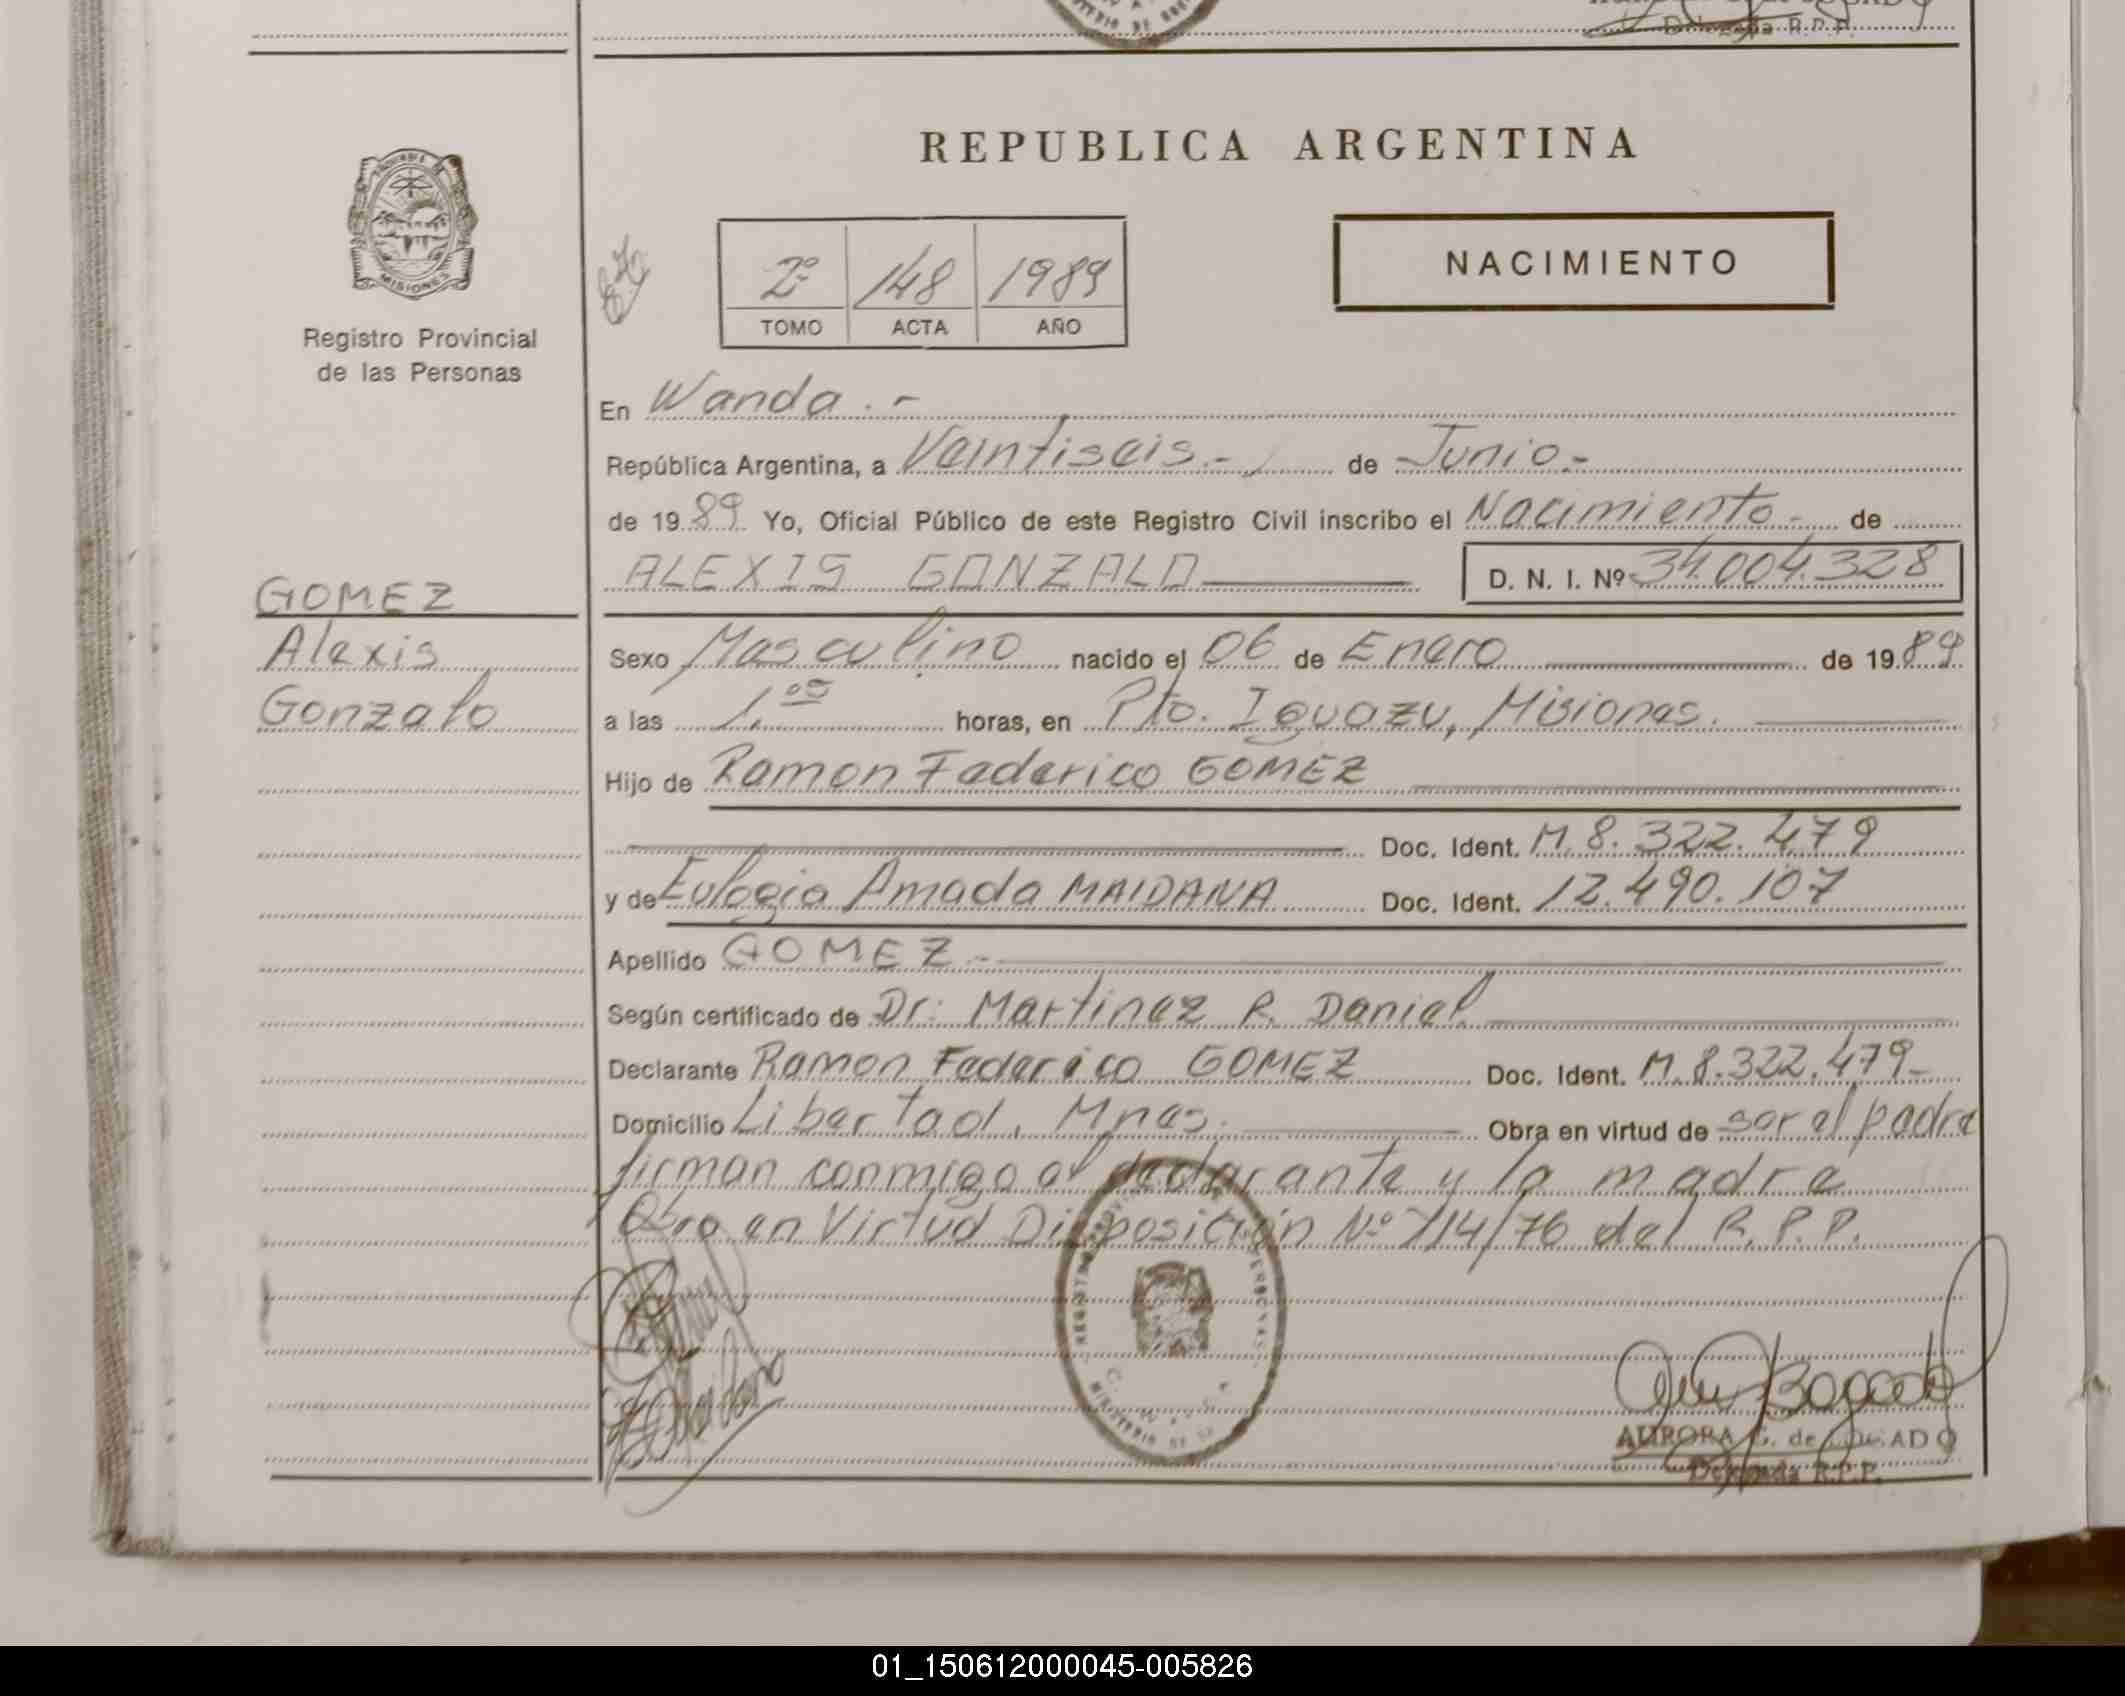 Delegada R.P.P.
REPUBLICA ARGENTINA
MISIONES
Registro Provincial
de las Personas
2º 148 1989
TOMO ACTA AÑO
NACIMIENTO
En Wanda.-
República Argentina, a Veintiseis.- de Junio.-
de 1989 Yo, Oficial Público de este Registro Civil inscribo el Nacimiento- de
ALEXIS GONZALO D. N. I. Nº 34.004.328
GOMEZ
Alexis
Gonzalo
Sexo Masculino nacido el 06 de Enero de 1989
a las 1.00 horas, en Pto. Iguazu, Misiones.
Hijo de Ramon Federico GOMEZ
Doc. Ident. M.8.322.479
y de Eulogia Amada MAIDANA Doc. Ident. 12.490.107
Apellido GOMEZ.-
Según certificado de Dr: Martinez R. Daniel
Declarante Ramon Federico GOMEZ Doc. Ident. M.8.322.479-
Domicilio Libertad, Mnes. Obra en virtud de ser el padre
firman conmigo el declarante y la madre
Obro en Virtud Disposición Nº 714/76 del R.P.P.
AURORA G. de BOGADO
Delegada R.P.P.
01_150612000045-005826